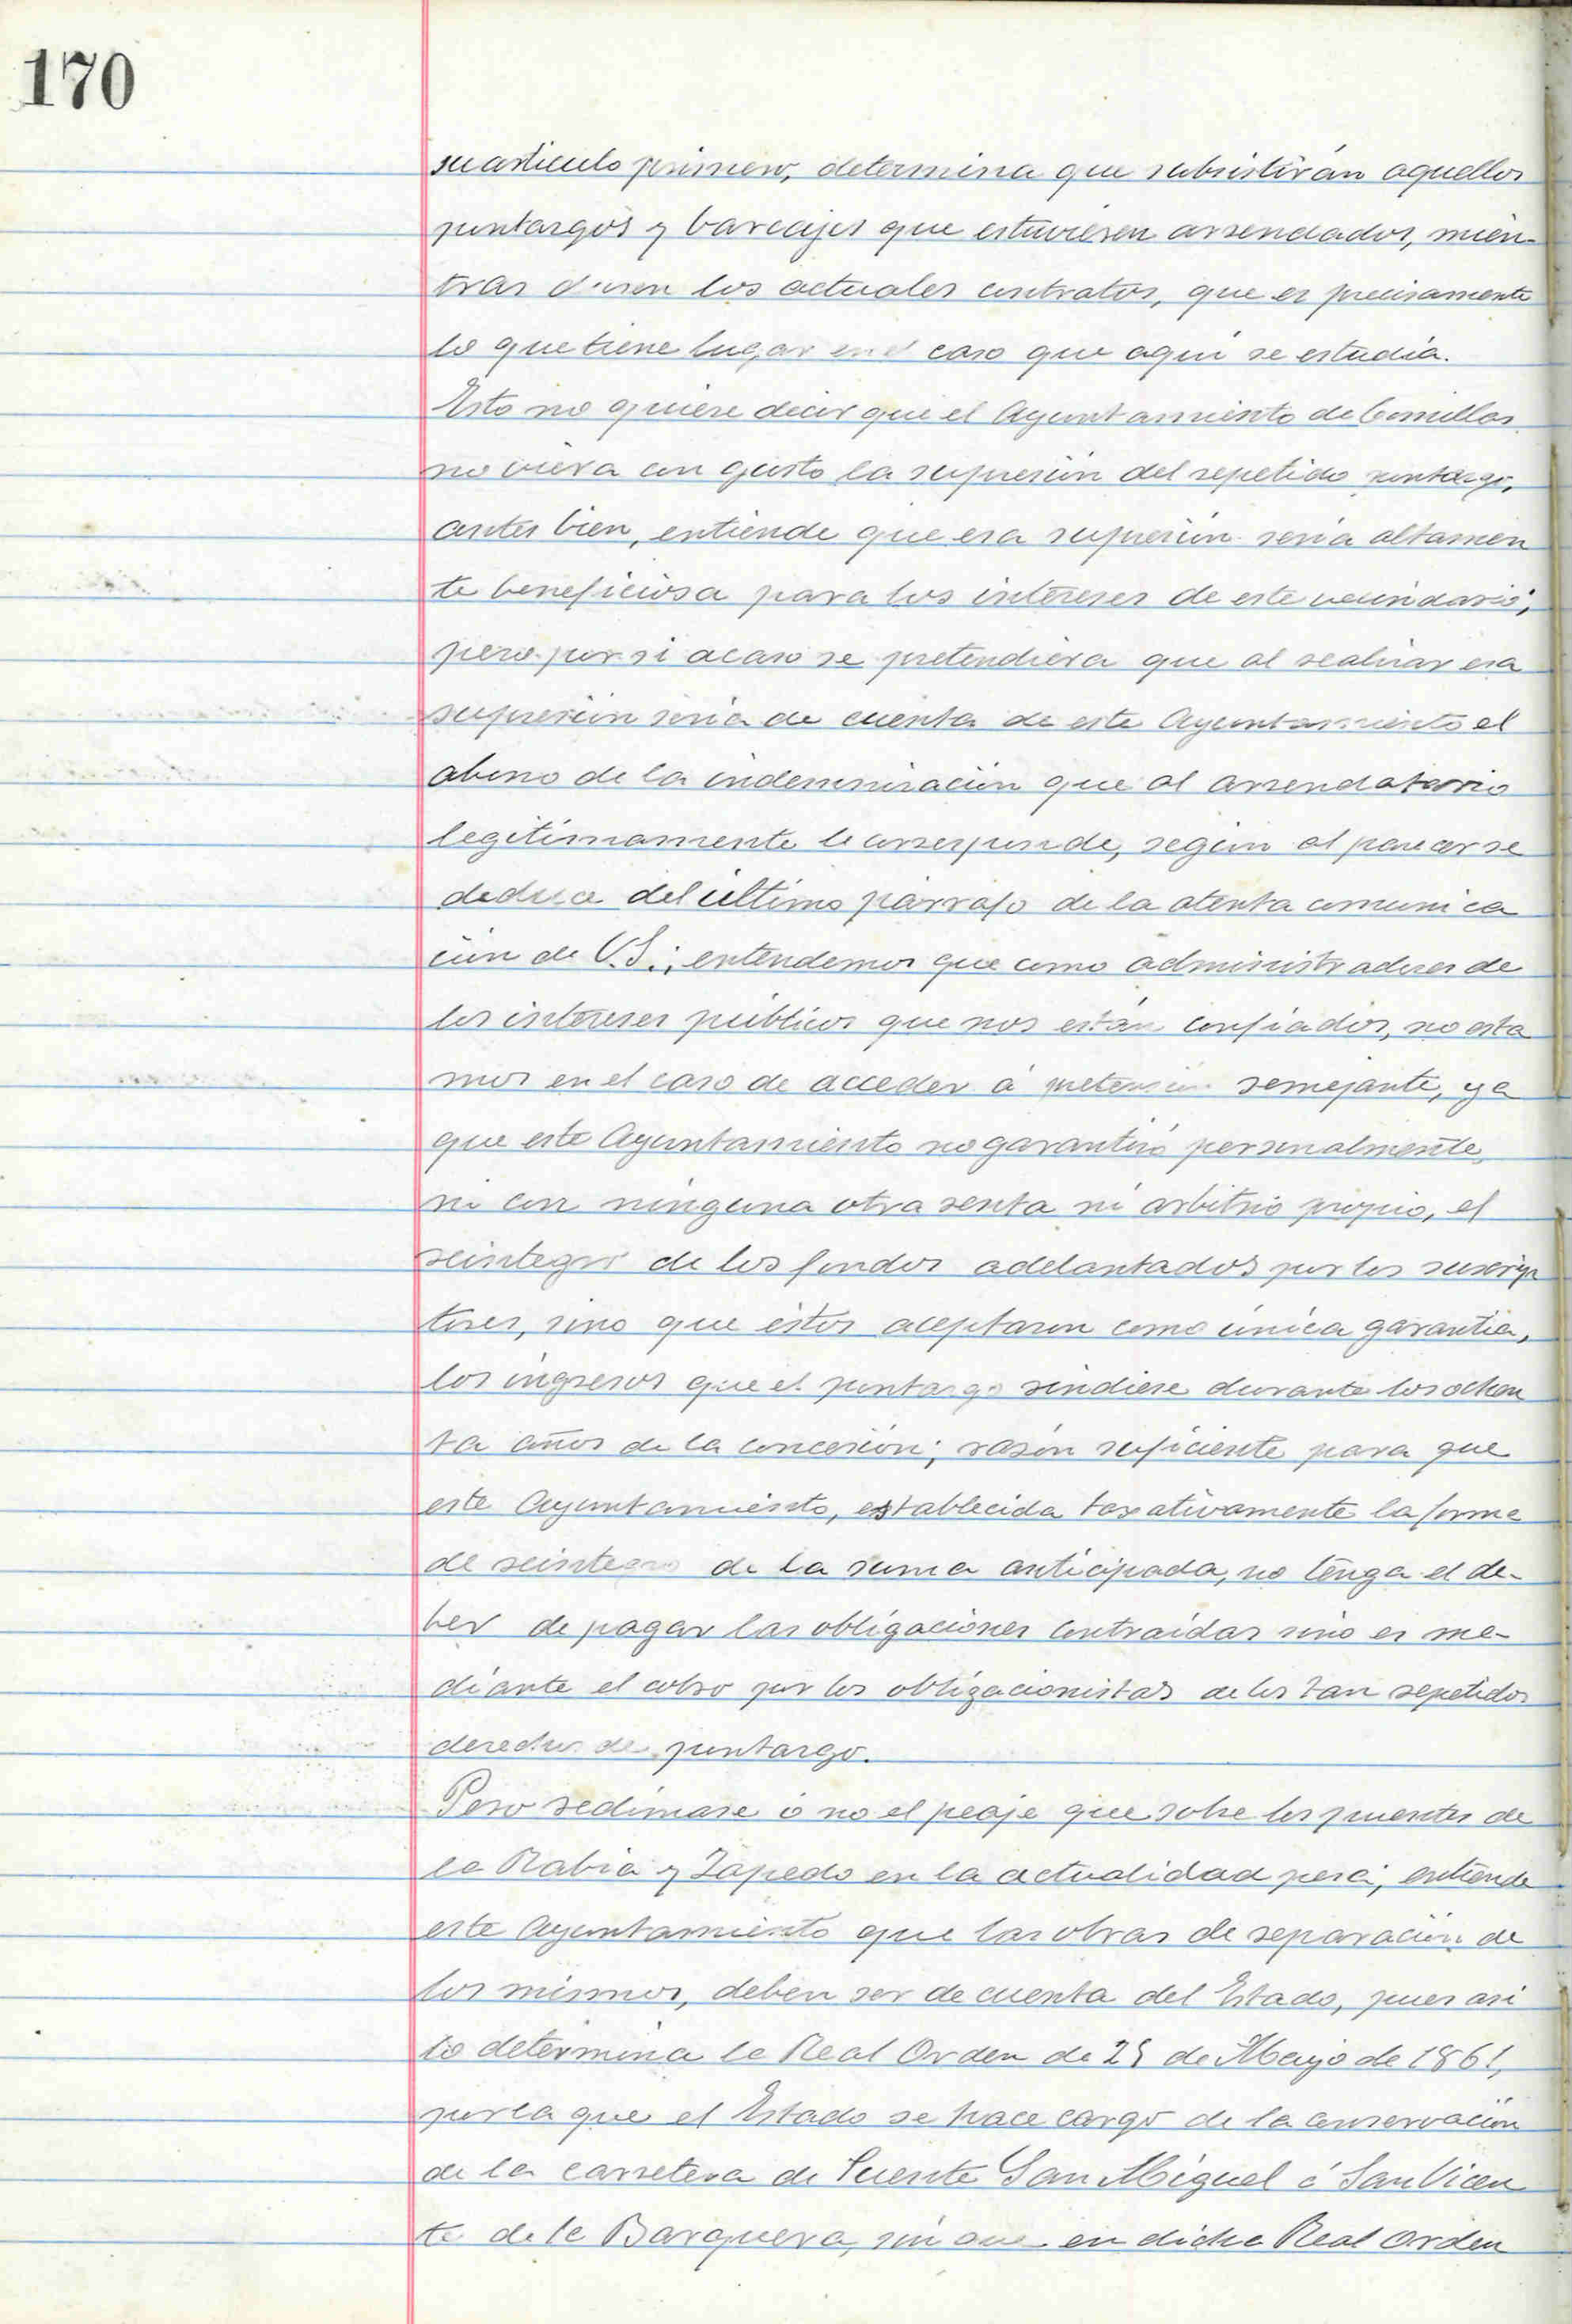 170
su articulo primero, determina que subsistirán aquellos
pontazgos y barcajes que estuviesen arrendados, mien-
tras duren los actuales contratos, que es precisamente
lo que tiene lugar en el caso que aqui se estudia.
Esto no quiere decir que el Ayuntamiento de Comillas
no viera con gusto la supresión del repetido pontazgo,
antes bien, entiende que esa supresión seria altamen
te beneficiosa para los intereses de este vecindario;
pero por si acaso se pretendiera que al realizar esa
supresión seria de cuenta de este Ayuntamiento el
abono de la indemnización que al arrendatario
legitimamente le corresponde, según al parecer se
deduce del último párrafo de la atenta comunica
ción de V.S.; entendemos que como administradores de
los intereses públicos que nos están confiados, no esta
mos en el caso de acceder á pretensión semejante, ya
que este Ayuntamiento no garantizó personalmente,
ni con ninguna otra renta ni arbitrio propio, el
reintegro de los fondos adelantados por los suscrip
tores, sino que éstos aceptaron como única garantia,
los ingresos que el pontazgo rindiese durante los ochen
ta años de la concesión; razón suficiente para que
este Ayuntamiento, establecida taxativamente la forma
de reintegro de la suma anticipada, no tenga el de-
ber de pagar las obligaciones contraidas sino es me-
diante el cobro por los obligacionistas de los tan repetidos
derechos de pontazgo.
Pero redimase ó no el peaje que sobre los puentes de
la Rabia y Zapedo en la actualidad pesa; entiende
este Ayuntamiento que las obras de reparación de
los mismos, deben ser de cuenta del Estado, pues asi
lo determina la Real Orden de 25 de Mayo de 1861,
por la que el Estado se hace cargo de la conservación
de la carretera de Puente San Miguel á San Vicen
te de la Barquera, sin que en dicha Real Orden